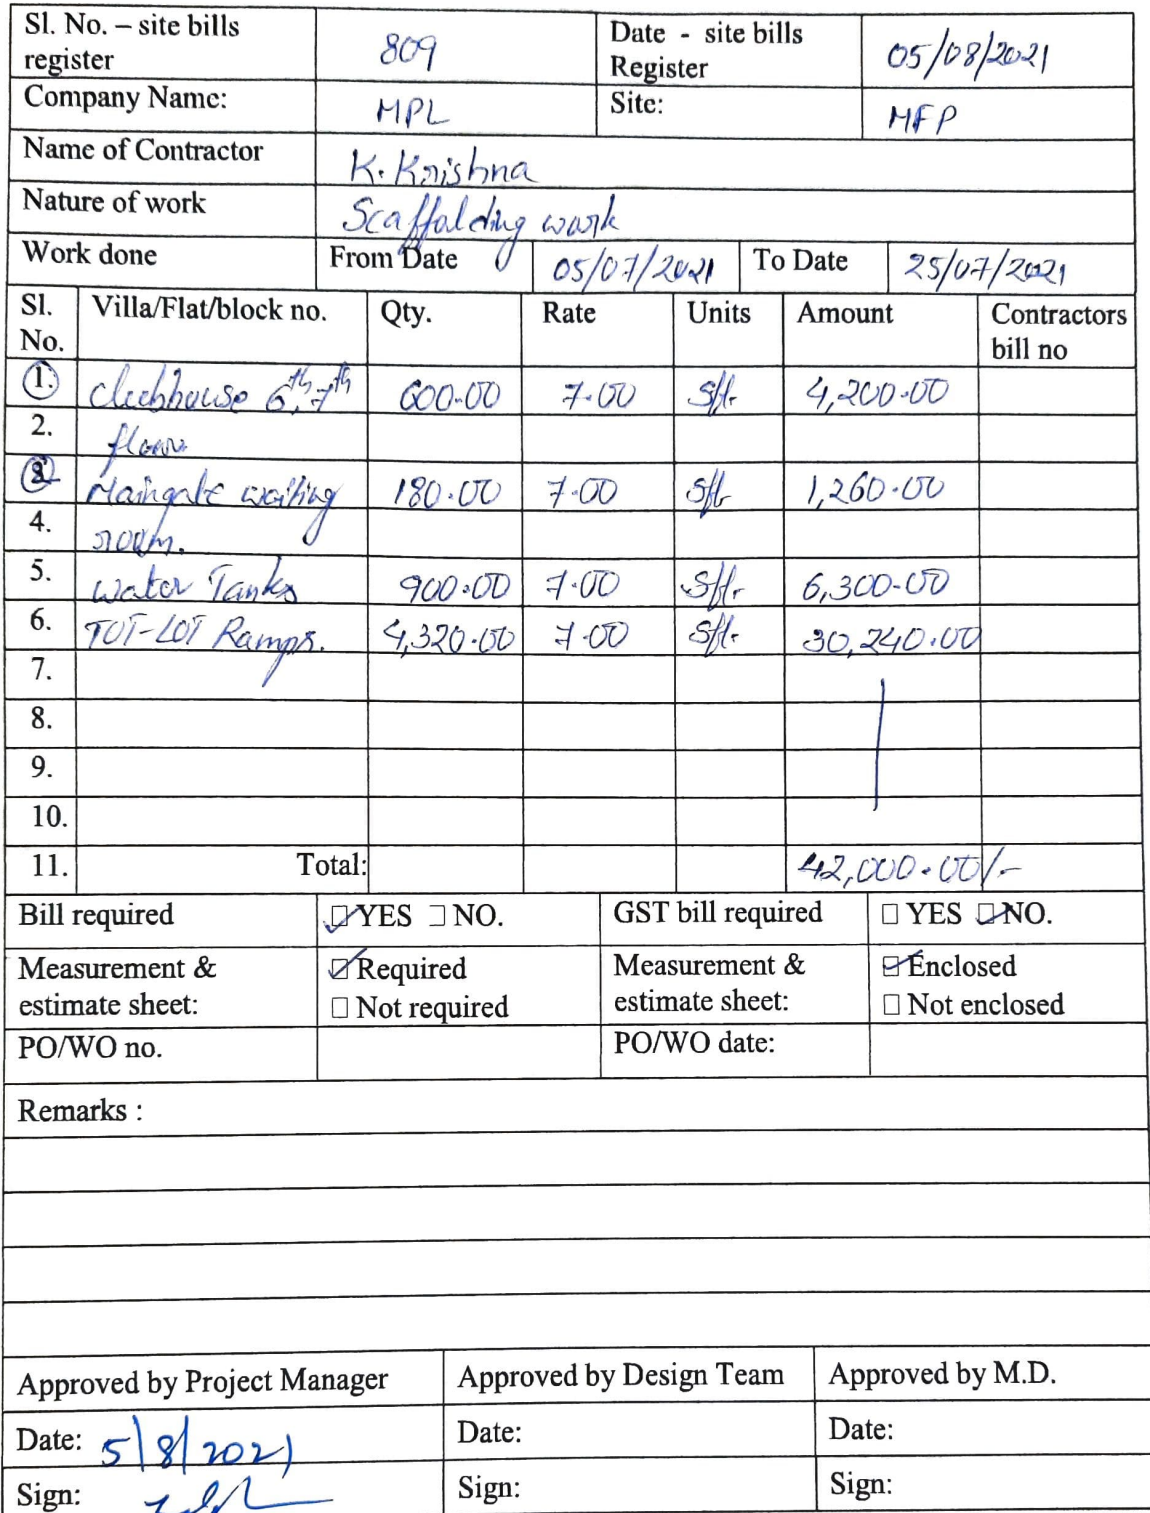 Sl. No. – site bills register 809 Date - site bills Register 05/08/2021
Company Name: MPL Site: MFP
Name of Contractor K. Krishna
Nature of work Scaffalding work
Work done From Date 05/07/2021 To Date 25/07/2021
Sl. No. Villa/Flat/block no. Qty. Rate Units Amount Contractors bill no
1. Clubhouse 6th, 7th 600.00 7.00 Sft. 4,200.00
2. floor
3. Maingate waiting 180.00 7.00 Sft 1,260.00
4. room.
5. Water Tanks 900.00 7.00 Sft. 6,300.00
6. TOT-LOT Ramps. 4,320.00 7.00 Sft. 30,240.00
7.
8.
9.
10.
11. Total: 42,000.00/-
Bill required ☑ YES ☐ NO. GST bill required ☐ YES ☑ NO.
Measurement & estimate sheet: ☑ Required ☐ Not required Measurement & estimate sheet: ☑ Enclosed ☐ Not enclosed
PO/WO no. PO/WO date:
Remarks :
Approved by Project Manager Approved by Design Team Approved by M.D.
Date: 5/8/2021 Date: Date:
Sign: Sign: Sign: